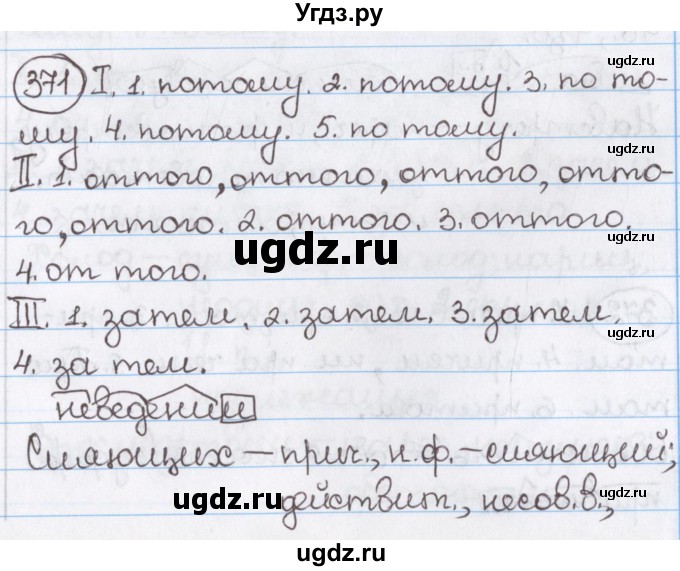 Угдз.ру
ugdz.ru
371 I. 1. потому. 2. потому. 3. по то-
ugdz.ru
му. 4. потому. 5. по тому.
II. 1. оттого, оттого, оттого, отто-
го, оттого. 2. оттого. 3. оттого.
ugdz.ru
ugdz.ru
4. от того.
III. 1. затем. 2. затем. 3. затем.
ugdz.ru
4. за тем.
неведении
Сияющих – прич., н.ф. – сияющий;
ugdz.ru
ugdz.ru
действит., несов.в.,
ugdz.ru